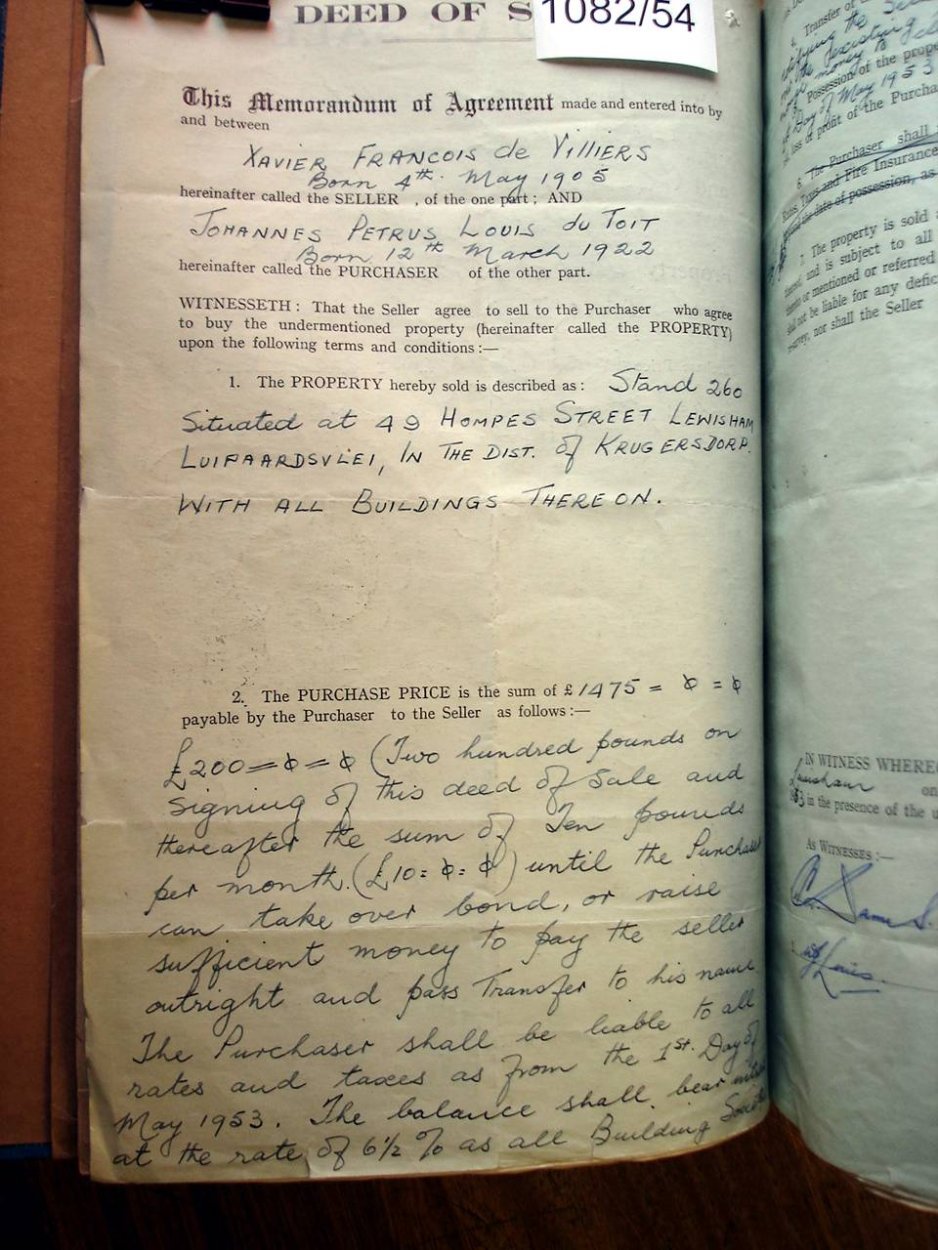 DEED OF S
1082/54
This Memorandum of Agreement made and entered into by
and between
XAVIER FRANCOIS de VILLIERS
Born 4th. May 1905
hereinafter called the SELLER , of the one part ; AND
JOHANNES PETRUS LOUIS du TOIT
Born 12th March 1922
hereinafter called the PURCHASER of the other part.
WITNESSETH : That the Seller agree to sell to the Purchaser who agree
to buy the undermentioned property (hereinafter called the PROPERTY)
upon the following terms and conditions :—
1. The PROPERTY hereby sold is described as : Stand 260
Situated at 49 HOMPES STREET LEWISHAM
LUIPAARDSVLEI, IN THE DIST. of KRUGERSDORP.
WITH ALL BUILDINGS THEREON.
2. The PURCHASE PRICE is the sum of £ 1475 = 0 = 0
payable by the Purchaser to the Seller as follows :—
£200 = 0 = 0 (Two hundred pounds on
signing of this deed of Sale and
thereafter the sum of Ten pounds
per month. (£10 = 0 = 0) until the Purchaser
can take over bond, or raise
sufficient money to pay the seller
outright and pass Transfer to his name
The Purchaser shall be liable to all
rates and taxes as from the 1st. Day of
May 1953. The balance shall bear
at the rate of 6½ % as all Building
4. Transfer of
Possession of the prope
Day of May 1953
loss or profit of the Purcha
6. The Purchaser shall
Rates, Taxes and Fire Insurance
the date of possession, as
7. The property is sold
and is subject to all
or mentioned or referred
shall not be liable for any defic
survey, nor shall the Seller
IN WITNESS WHEREO
Lewisham on
53 in the presence of the u
AS WITNESSES :—